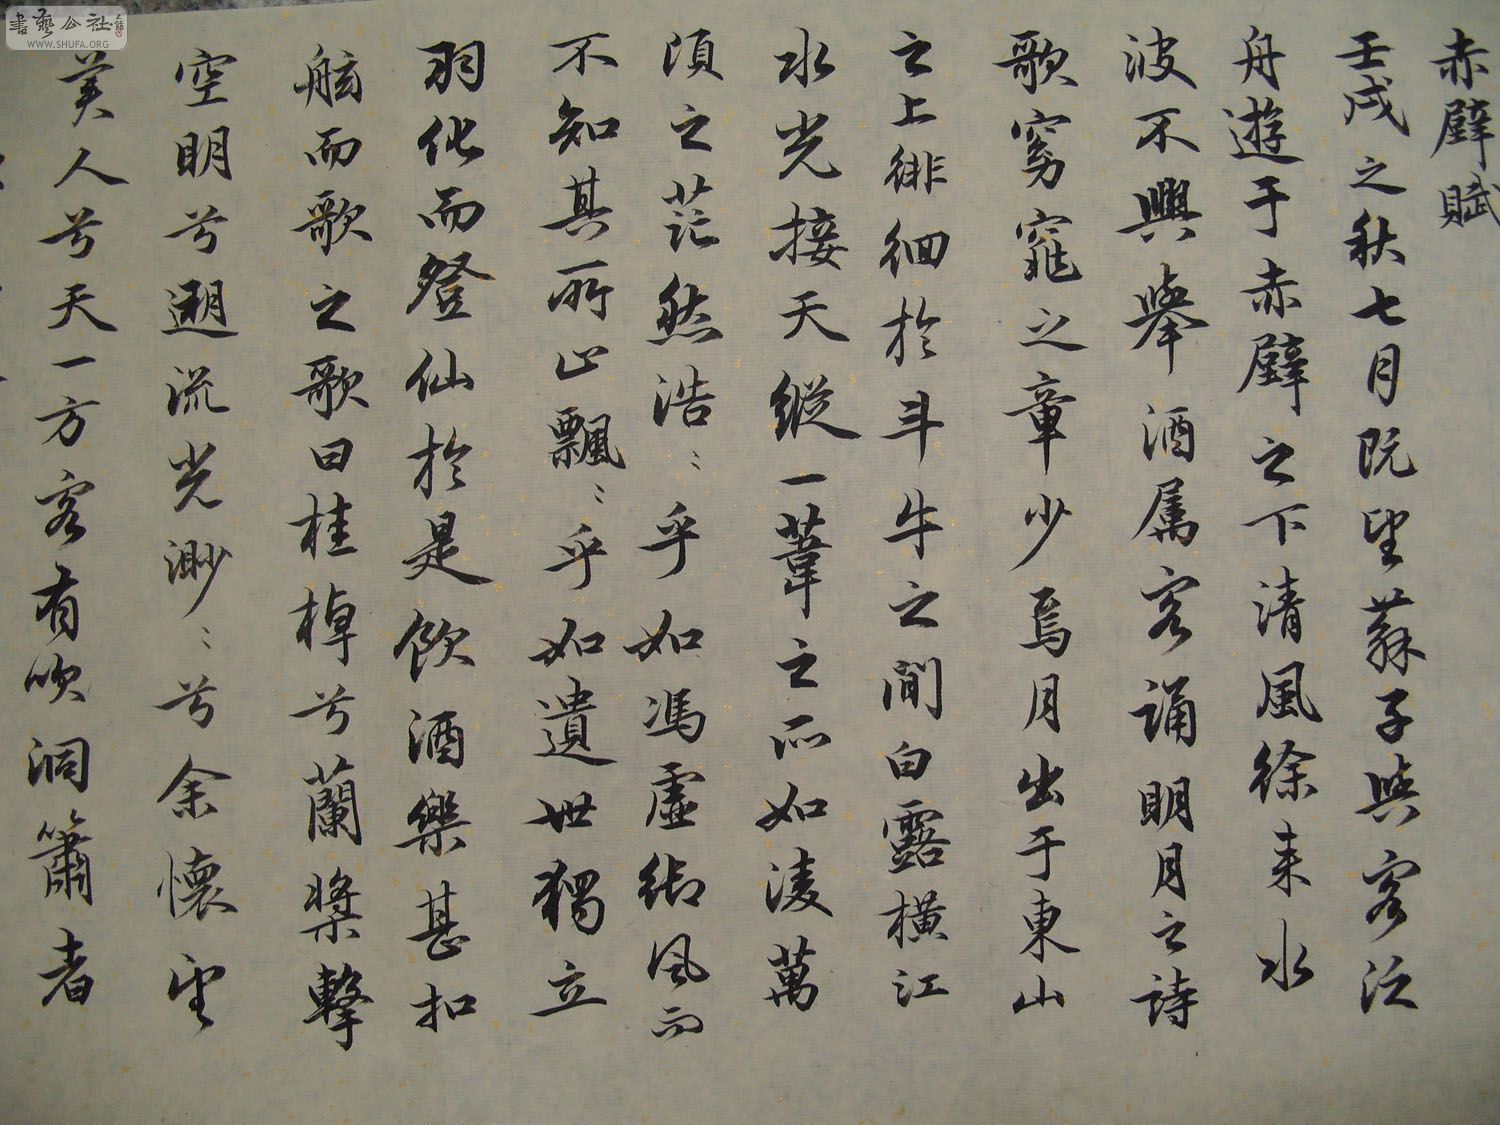 赤壁賦
壬戌之秋七月既望蘇子與客泛
舟遊于赤壁之下清風徐来水
波不興舉酒属客誦明月之詩
歌窈窕之章少焉月出于東山
之上徘徊於斗牛之間白露橫江
水光接天縱一葦之所如淩萬
頃之茫然浩〻乎如馮虛御風而
不知其所止飄〻乎如遺世獨立
羽化而登仙於是飲酒樂甚扣
舷而歌之歌曰桂棹兮蘭槳擊
空明兮遡流光渺〻兮余懷望
美人兮天一方客有吹洞簫者
書藝公社
WWW.SHUFA.ORG